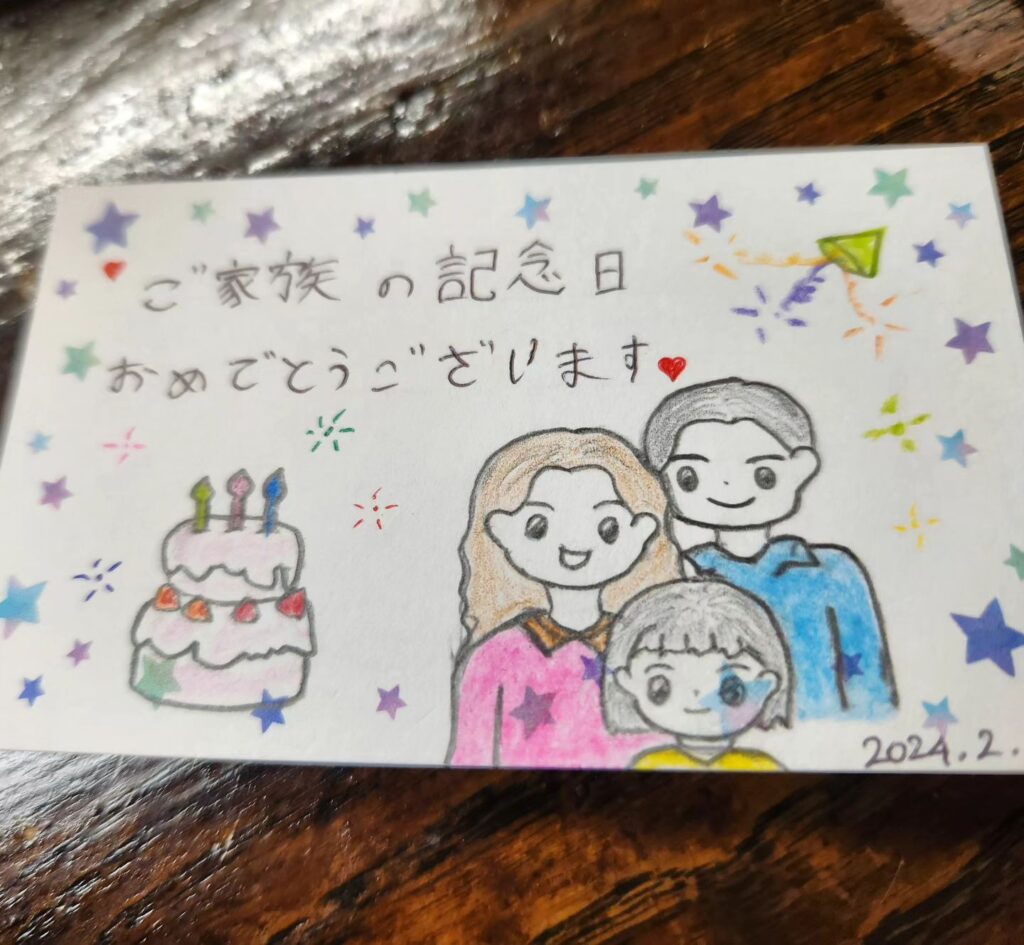 ご家族の記念日
おめでとうございます
2024.2.